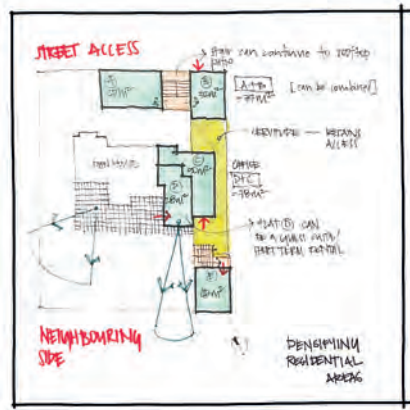 STREET ACCESS
stair can continue to rooftop
patio
B
A+B
~77m²
[can be combined]
SERVITUDE — RETAINS
ACCESS
C
OFFICE
D+C
~78m²
D
28m²
FLAT D CAN
BE A GUEST SUITE/
SHORT TERM RENTAL
NEIGHBOURING
SIDE
DENSIFYING
RESIDENTIAL
AREAS